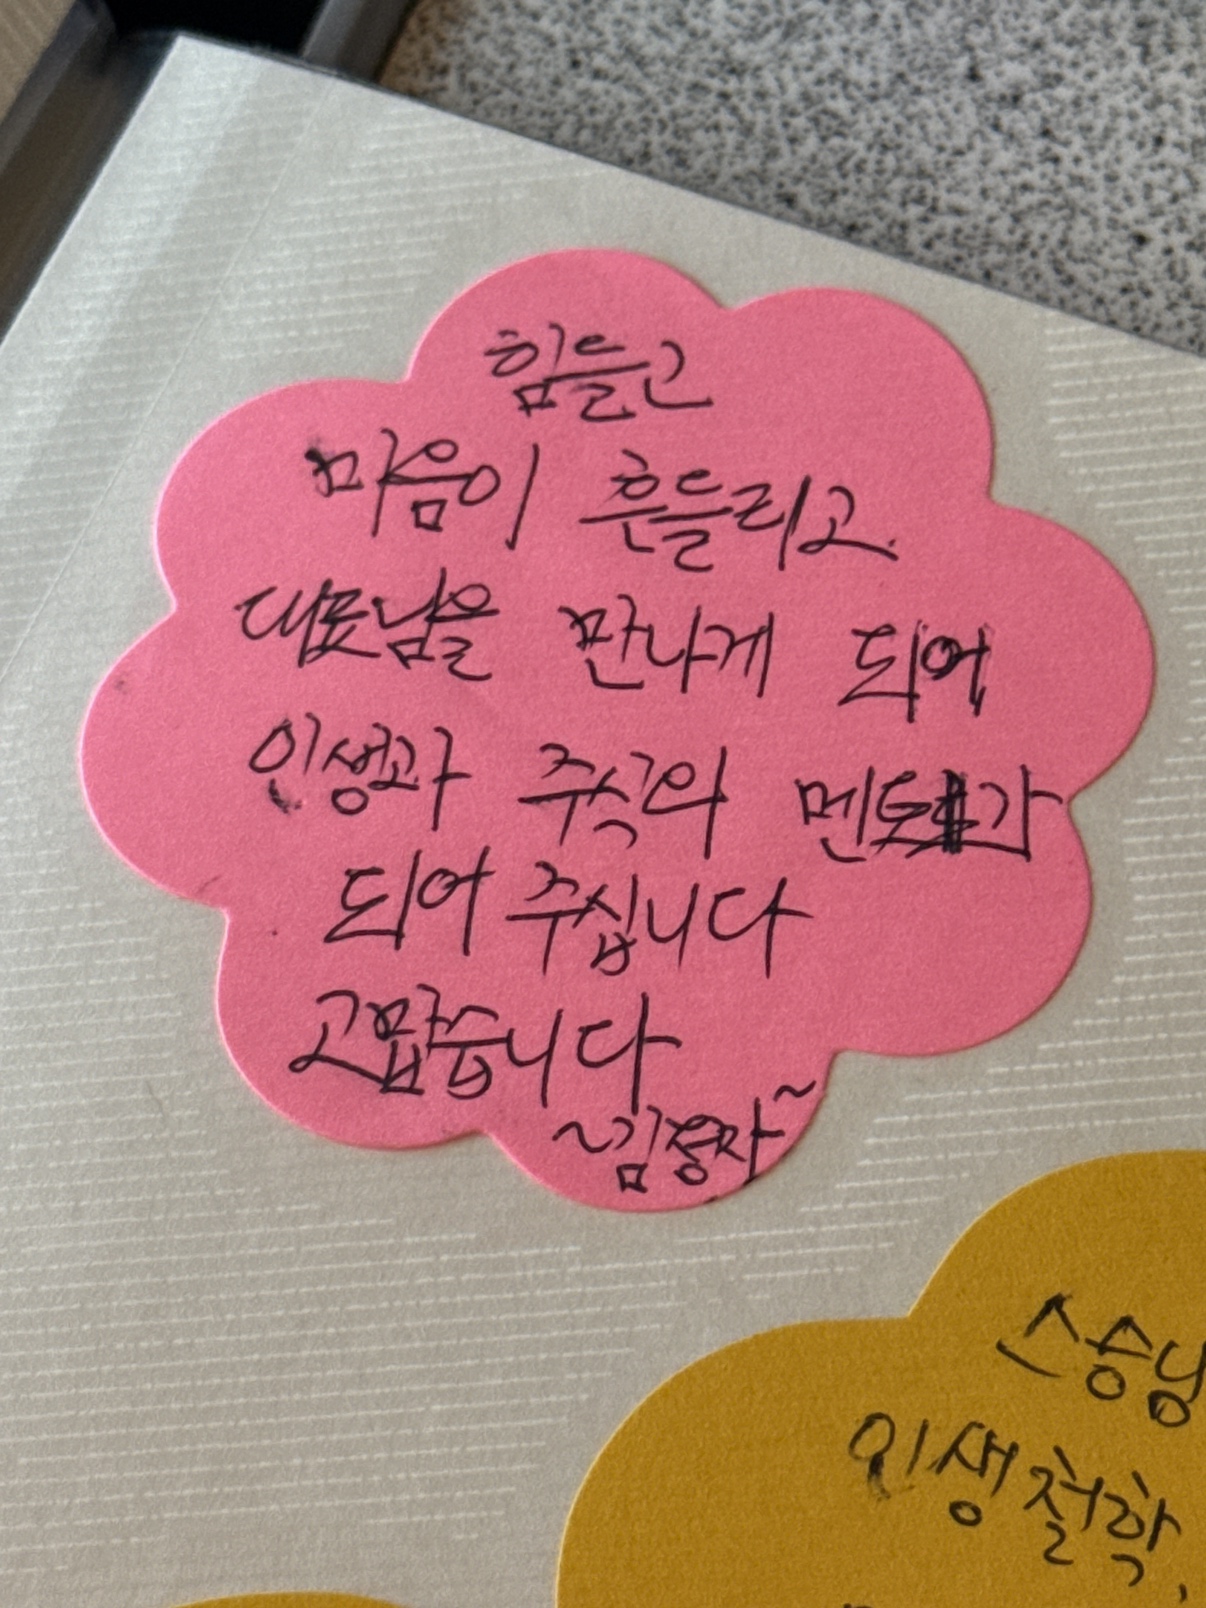 힘들고
마음이 흔들리고
대표님을 만나게 되어
인생과 주식의 멘토가
되어 주십니다
고맙습니다
~김정자~
스승님
인생철학,